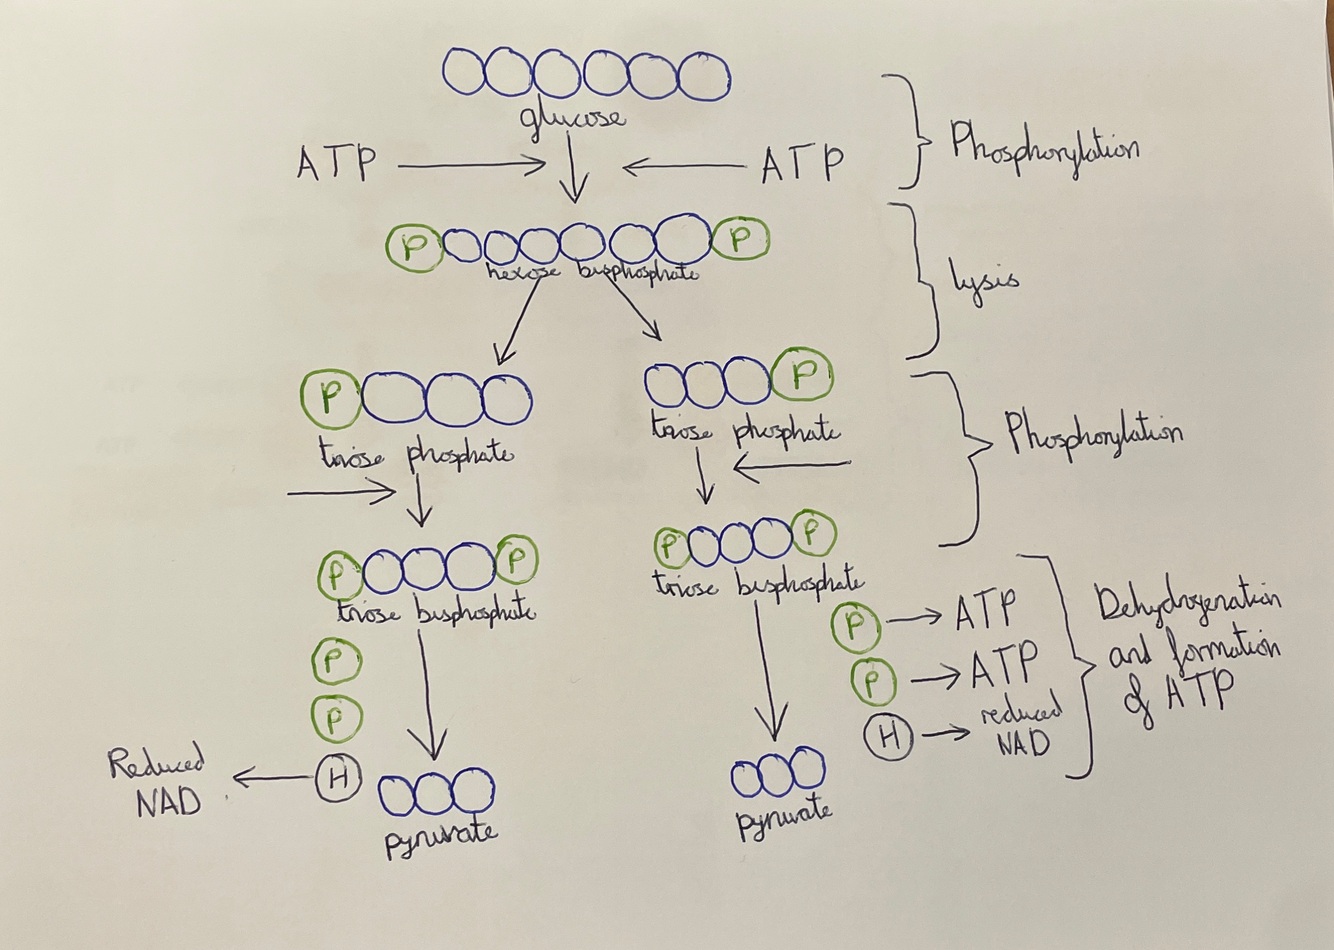 glucose
ATP
ATP
Phosphorylation
P
P
hexose bisphosphate
lysis
P
P
triose phosphate
triose phosphate
Phosphorylation
P
P
P
P
triose bisphosphate
triose bisphosphate
P
P
P → ATP
P → ATP
H → reduced
NAD
Dehydrogenation
and formation
of ATP
Reduced
NAD
H
pyruvate
pyruvate